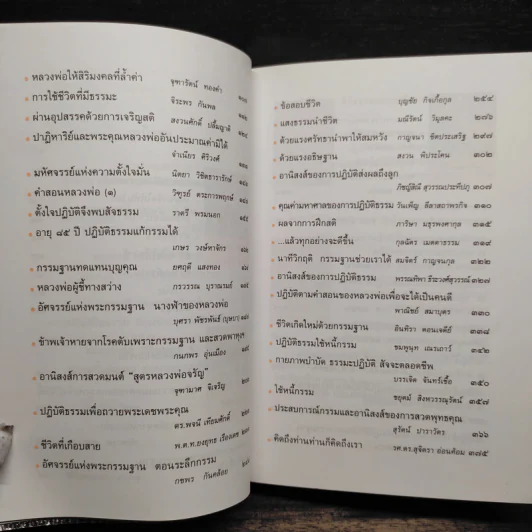 หลวงพ่อให้สิริมงคลที่ล้ำค่า
จุฑารัตน์ ทองคำ
การใช้ชีวิตที่มีธรรมะ
จีระพร กันพล
ผ่านอุปสรรคด้วยการเจริญสติ
สงวนศักดิ์ ปลื้มญาติ
ปาฏิหาริย์และพระคุณหลวงพ่ออันประมาณค่ามิได้
จำเนียร ศิริวงศ์
มหัศจรรย์แห่งความตั้งใจมั่น
นิตยา วิชิตธารารักษ์
คำสอนหลวงพ่อ (๑)
วิฑูรย์ ตระการพฤกษ์
ตั้งใจปฏิบัติจึงพบสัจธรรม
ราตรี พรมนอก
อายุ ๘๕ ปี ปฏิบัติธรรมแก้กรรมได้
เกษร วงษ์หาจักร
กรรมฐานทดแทนบุญคุณ
ยศฤดี แสงทอง
หลวงพ่อผู้ชี้ทางสว่าง
กรวรรณ บุราณานย์
อัศจรรย์แห่งพระกรรมฐาน นางฟ้าของหลวงพ่อ
บุศรา พัชรพันธ์ (บุษบา)
ข้าพเจ้าหายจากโรคตับเพราะกรรมฐาน และสวดพาหุงฯ
กนกพร อุ่นเมือง
อานิสงส์การสวดมนต์ "สูตรหลวงพ่อจรัญ"
จุฑามาศ จีเจริญ
ปฏิบัติธรรมเพื่อถวายพระเดชพระคุณ
ดร.พจนี เทียมศักดิ์
ชีวิตที่เกือบสาย
พ.ต.ท.ยงยุทธ เรืองเดช
อัศจรรย์แห่งพระกรรมฐาน ตอนระลึกกรรม
กชพร กันคล้อย
ข้อสอบชีวิต
บุญชัย กิจเกื้อกูล ๒๕๔
แสงธรรมนำชีวิต
มณีรัตน์ วิมูลคะ ๒๗๖
ด้วยแรงศรัทธานำพาให้สมหวัง กาญจนา ชิตประเสริฐ ๒๙๗
ด้วยแรงอธิษฐาน
สงวน พิประโคน ๓๐๒
อานิสงส์ของการปฏิบัติส่งผลถึงลูก
๓๐๗
คุณค่ามหาศาลของการปฏิบัติธรรม วันเพ็ญ ลีลาสถาพรกิจ ๓๑๐
ผลจากการฝึกสติ
ภาริษา มธุรพงศากุล ๓๑๕
...แล้วทุกอย่างจะดีขึ้น
กุลฉัตร เมตตาธรรม ๓๑๙
นาทีวิกฤติ กรรมฐานช่วยเราได้ สมจิตร์ กาญจนกุล ๓๒๔
อานิสงส์ของการปฏิบัติธรรม
พรรณทิพา ธีระวงศ์สุวรรณ์ ๓๒๗
ปฏิบัติตามคำสอนของหลวงพ่อเพื่อจะได้เป็นคนดี
พาณิชย์ สมาบุตร ๓๓๐
ชีวิตเกิดใหม่ด้วยกรรมฐาน
อินทิรา ดอนเจดีย์ ๓๓๘
ปฏิบัติธรรมใช้หนี้กรรม
ชมพูนุท เณรเถาว์ ๓๔๒
กายภาพบำบัด ธรรมะปฏิบัติ สัจจะคลอดชีพ
บรรเจิด จันทร์เชื้อ ๓๕๐
ใช้หนี้กรรม
ชยุตม์ สิงหวรรณุรัตน์ ๓๕๗
ประสบการณ์กรรมและอานิสงส์ของการสวดพุทธคุณ
สุรัตน์ ปาราวัตร ๓๖๖
คิดถึงท่านท่านก็คิดถึงเรา
รศ.ดร.สุจิตรา อ่อนค้อม ๓๗๕